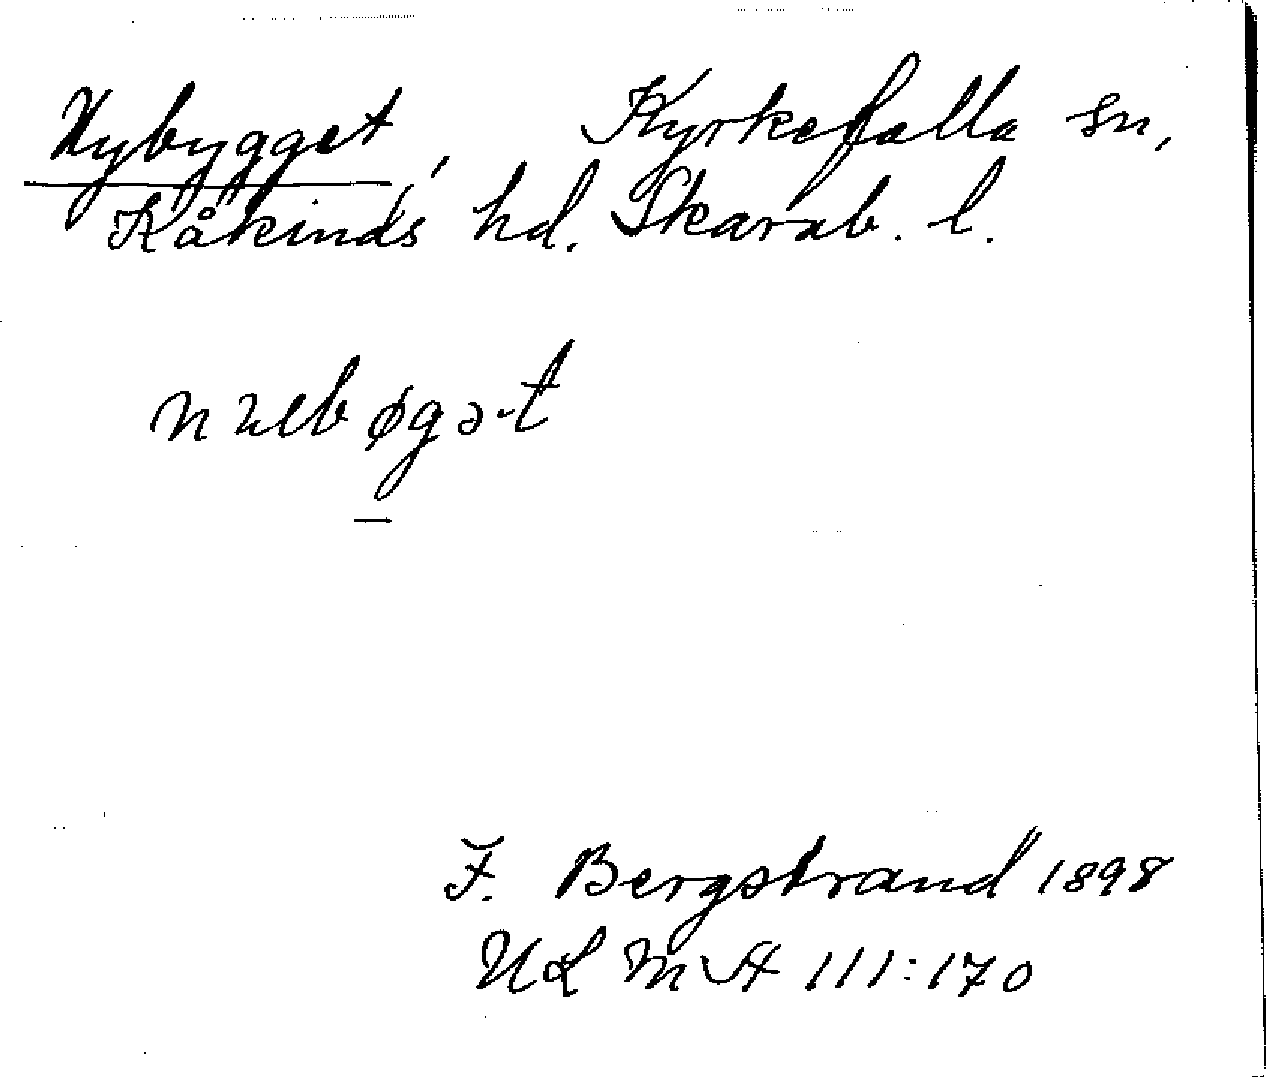 Nybygget, Kyrkefalla sn,
Kåkinds hd. Skarab. l.
F. Bergstrand 1898
ULMA 111:170